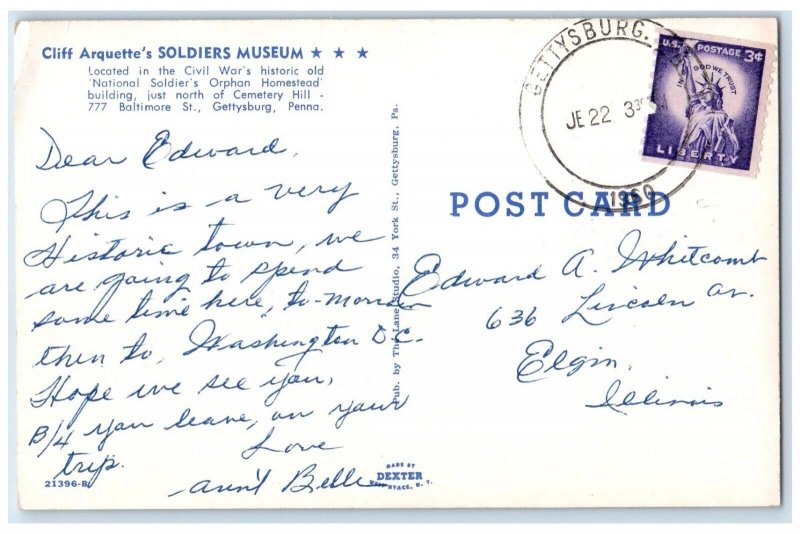 Cliff Arquette's SOLDIERS MUSEUM ★ ★ ★
Located in the Civil War's historic old
'National Soldier's Orphan Homestead'
building, just north of Cemetery Hill -
777 Baltimore St., Gettysburg, Penna.
Dear Edward,
This is a very
Historic town, we
are going to spend
some time here, to-morrow
then to, Washington D.C.
Hope we see you,
B/4 you leave, on your
trip.
Love
Aunt Belle
21396-B
Pub. by The Lane Studio, 34 York St., Gettysburg, Pa.
MADE BY
DEXTER
WEST NYACK, N. Y.
GETTYSBURG.
JE 22 3 30
1960
U.S. POSTAGE 3¢
IN GOD WE TRUST
LIBERTY
POST CARD
Edward A. Whitcomb
636 Lincoln Av.
Elgin,
Illinois